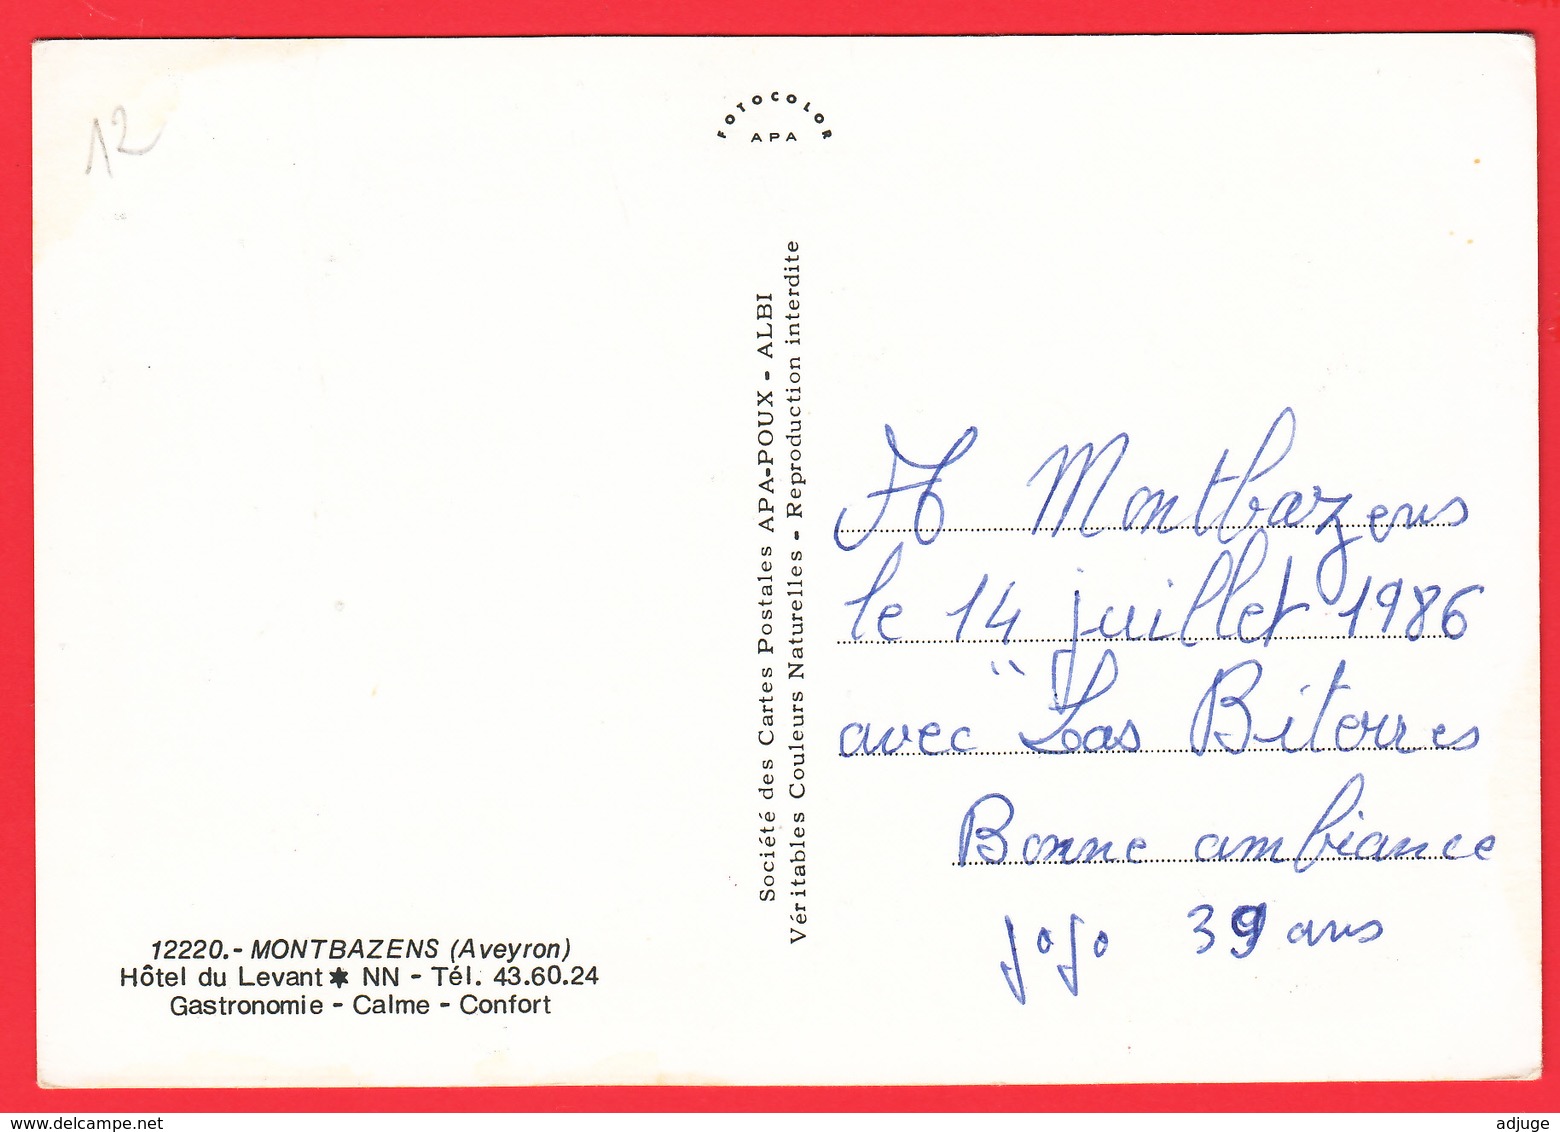 12
FOTOCOLOR
APA
Société des Cartes Postales APA-POUX - ALBI
Véritables Couleurs Naturelles - Reproduction interdite
12220.- MONTBAZENS (Aveyron)
Hôtel du Levant ✶ NN - Tél. 43.60.24
Gastronomie - Calme - Confort
A Montbazens
le 14 juillet 1986
avec "Las Biterres
Bonne ambiance
jojo 39 ans
www.delcampe.net
adjuge